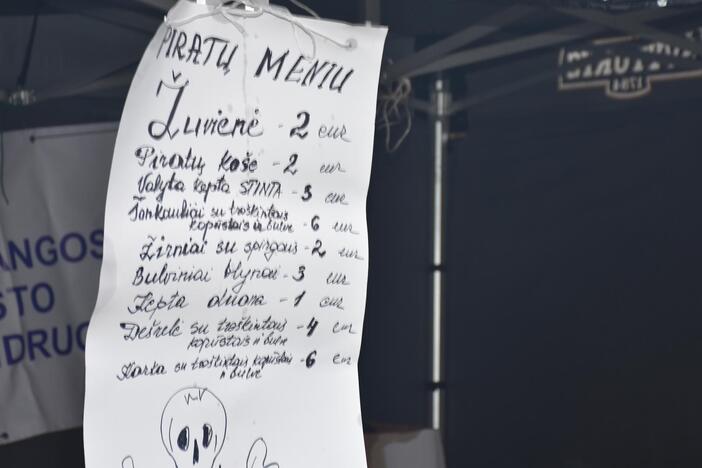 PIRATŲ MENIU
Žuvienė - 2 eur
Piratų košė - 2 eur
Valyta kepta STINTA - 3 eur
Šonkauliai su troškintais - 6 eur
kopūstais ir bulve
Žirniai su spirgais - 2 eur
Bulviniai blynai - 3 eur
Kepta duona - 1 eur
Dešrelė su troškintais - 4 eur
kopūstais ir bulve
Karka su troškintais kopūstais - 6 eur
ir bulve
ANGOS
STO
DRUG